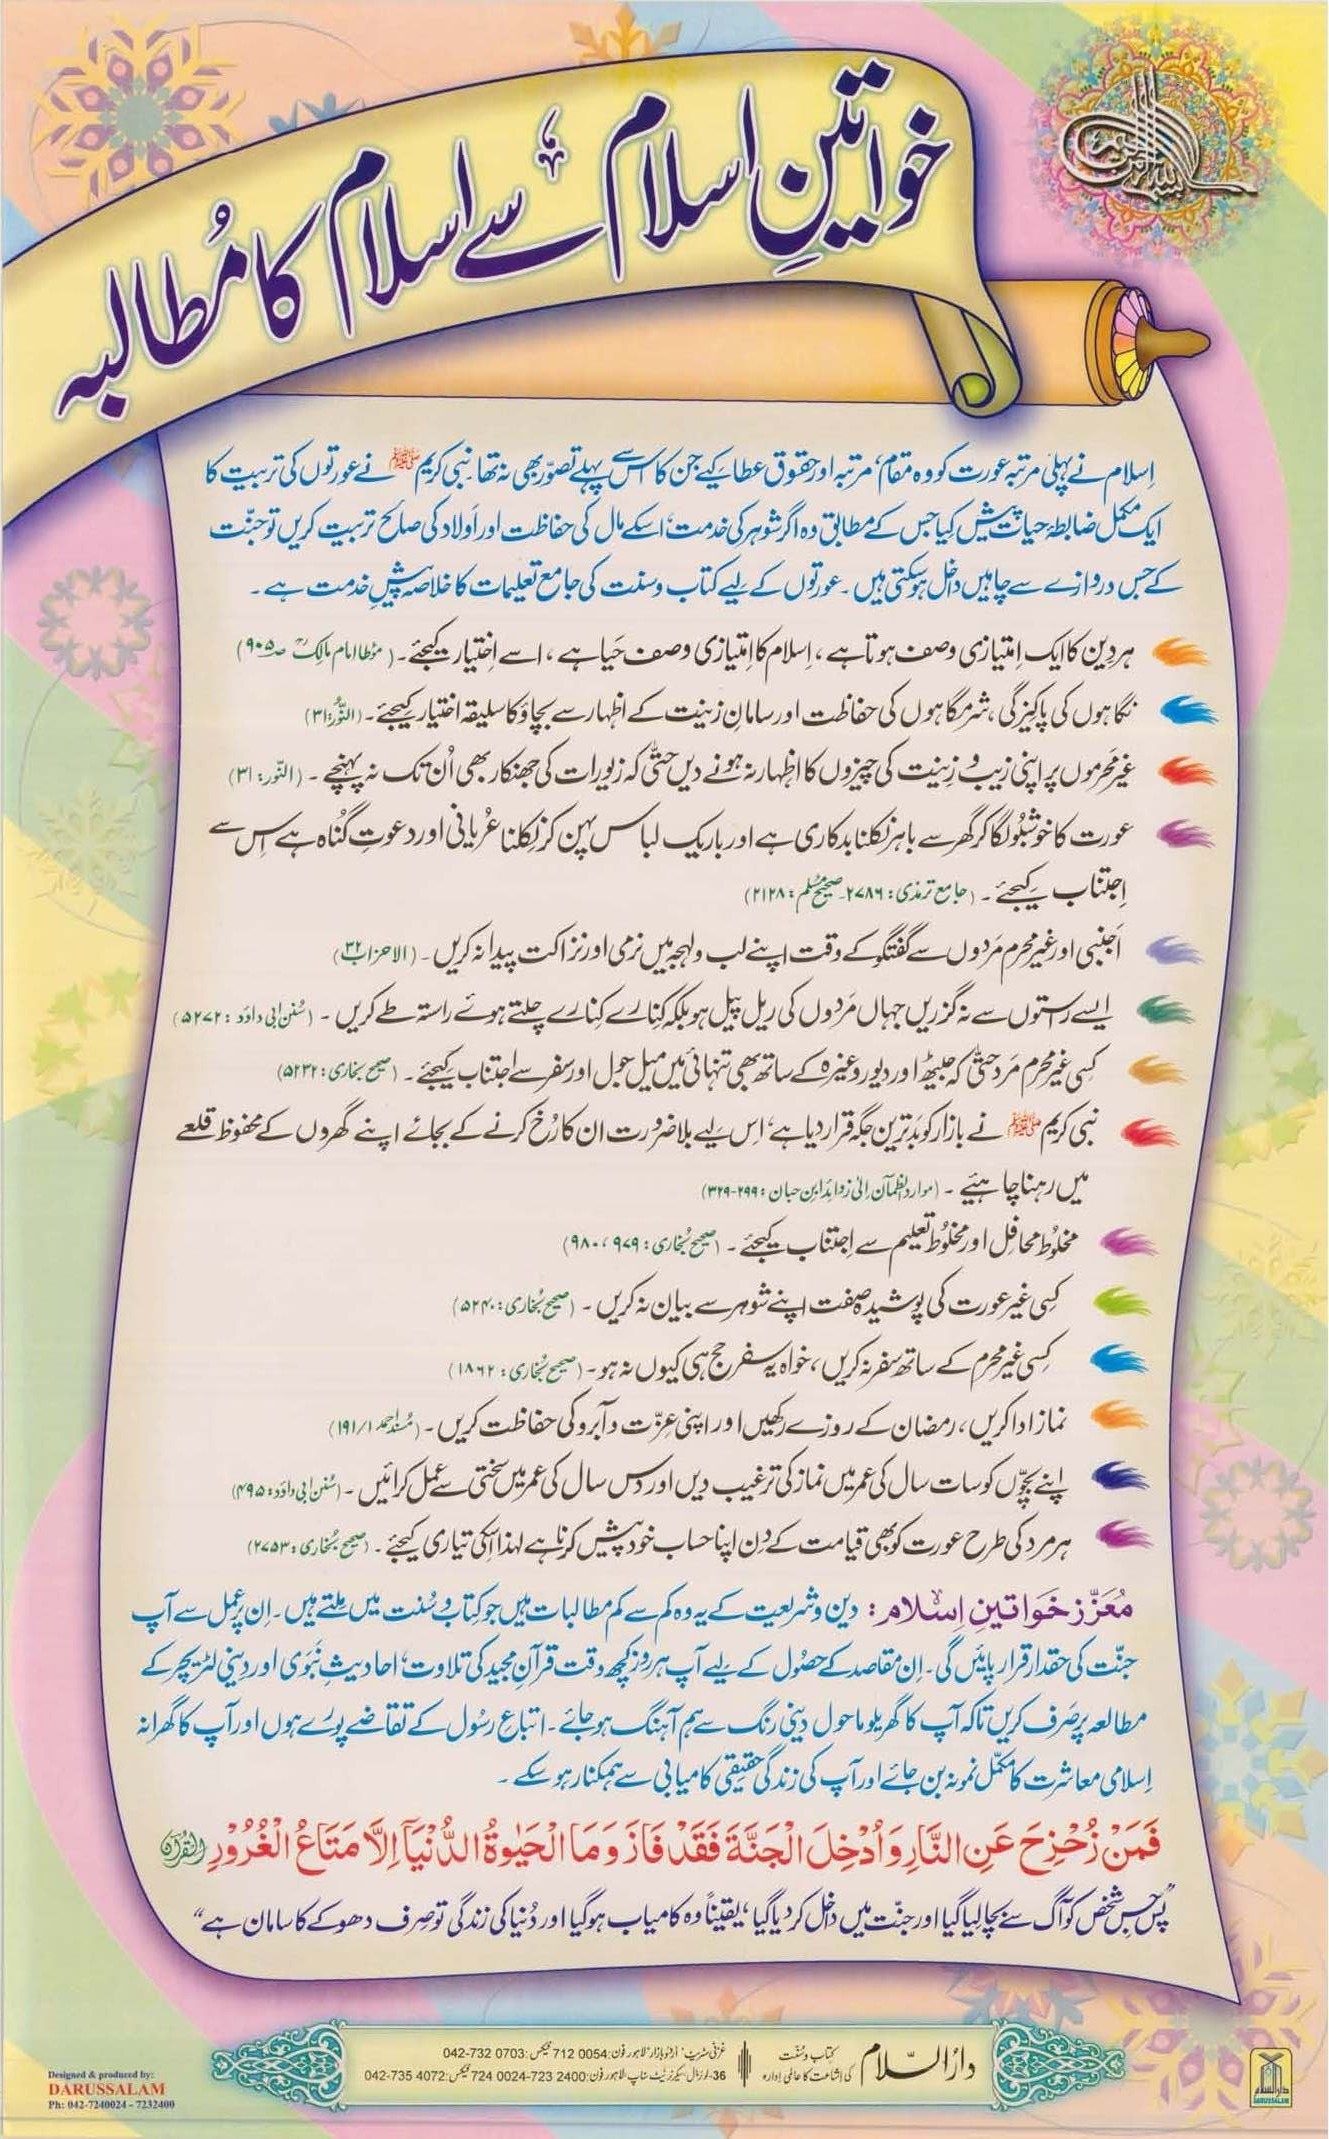 خواتینِ اسلام سے اسلام کا مُطالبہ
اِسلام نے پہلی مرتبہ عورت کو وہ مقام، مرتبہ اور حقوق عطا کیے جن کا اس سے پہلے تصوّر بھی نہ تھا۔ نبی کریم ﷺ نے عورتوں کی تربیت کا
ایک مکمل ضابطۂ حیات پیش کیا جس کے مطابق وہ اگر شوہر کی خدمت، اسکے مال کی حفاظت اور اَولاد کی صالح تربیت کریں تو جنّت
کے جس دروازے سے چاہیں داخل ہو سکتی ہیں۔ عورتوں کے لیے کتاب و سنت کی جامع تعلیمات کا خلاصہ پیشِ خدمت ہے۔
ہر دِین کا ایک اِمتیازی وصف ہوتا ہے، اِسلام کا اِمتیازی وصف حَیا ہے، اسے اِختیار کیجئے۔ (مؤطا امام مالکؒ صـ ۹۰۵)
نگاہوں کی پاکیزگی، شرمگاہوں کی حفاظت اور سامانِ زینت کے اظہار سے بچاؤ کا سلیقہ اختیار کیجئے۔ (النُّور: ۳۱)
غیر مَحرموں پر اپنی زیب و زِینت کی چیزوں کا اِظہار نہ ہونے دیں حتّٰی کہ زیورات کی جھنکار بھی اُن تک نہ پہنچے۔ (النّور: ۳۱)
عورت کا خوشبُو لگا کر گھر سے باہر نکلنا بدکاری ہے اور باریک لباس پہن کر نِکلنا عُریانی اور دعوتِ گُناہ ہے اِس سے
اِجتناب کیجئے۔ (جامع ترمذی: ۲۷۸۶۔ صحیح مُسلم: ۲۱۲۸)
اَجنبی اور غیر محرم مَردوں سے گفتگو کے وقت اپنے لب و لہجہ میں نرمی اور نزاکت پیدا نہ کریں۔ (الاحزاب ۳۲)
ایسے رستوں سے نہ گزریں جہاں مَردوں کی ریل پیل ہو بلکہ کِنارے کِنارے چلتے ہوئے راستہ طے کریں۔ (سُنن ابی داوٗد: ۵۲۷۲)
کِسی غیر محرم مَرد حتّٰی کہ جیٹھ اور دیور وغیرہ کے ساتھ بھی تنہائی میں میل جول اور سفر سے اجتناب کیجئے۔ (صحیح بخاری: ۵۲۳۲)
نبی کریم ﷺ نے بازار کو بَدترین جگہ قرار دیا ہے، اِس لیے بلا ضرورت ان کا رُخ کرنے کے بجائے اپنے گھروں کے محفوظ قلعے
میں رہنا چاہئیے۔ (موارد الظمآن الیٰ زوائد ابن حبان: ۲۹۹-۳۲۹)
مخلُوط محافل اور مخلُوط تعلیم سے اِجتناب کیجئے۔ (صحیح بُخاری: ۹۷۹، ۹۸۰)
کِسی غیر عورت کی پوشیدہ صِفت اپنے شوہر سے بیان نہ کریں۔ (صحیح بُخاری: ۵۲۴۰)
کِسی غیر محرم کے ساتھ سفر نہ کریں، خواہ یہ سفرِ حج ہی کیوں نہ ہو۔ (صحیح بُخاری: ۱۸۶۲)
نماز ادا کریں، رمضان کے روزے رکھیں اور اپنی عِزّت و آبرو کی حفاظت کریں۔ (مُسند احمد ۱/۱۹۱)
اپنے بچّوں کو سات سال کی عمر میں نماز کی ترغیب دیں اور دس سال کی عمر میں سختی سے عمل کرائیں۔ (سُنن ابی داوٗد: ۴۹۵)
ہر مرد کی طرح عورت کو بھی قیامت کے دِن اپنا حساب خود پیش کرنا ہے لہٰذا اسکی تیاری کیجئے۔ (صحیح بُخاری: ۲۷۵۳)
مُعَزّز خَوَاتینِ اِسلام: دین و شریعت کے یہ وہ کم سے کم مطالبات ہیں جو کِتاب و سُنت میں مِلتے ہیں۔ اِن پر عمل سے آپ
جنّت کی حقدار قرار پائیں گی۔ اِن مقاصد کے حصُول کے لیے آپ ہر روز کچھ وقت قرآنِ مجید کی تلاوت، احادیثِ نبوی اور دینی لٹریچر کے
مطالعہ پر صَرف کریں تاکہ آپ کا گھریلو ماحول دینی رنگ سے ہم آہنگ ہو جائے۔ اتباعِ رسُول کے تقاضے پورے ہوں اور آپ کا گھرانہ
اِسلامی معاشرت کا مکمّل نمونہ بن جائے اور آپ کی زندگی حقیقی کامیابی سے ہمکنار ہو سکے۔
فَمَنْ زُحْزِحَ عَنِ النَّارِ وَاُدْخِلَ الْجَنَّةَ فَقَدْ فَازَ وَمَا الْحَيٰوةُ الدُّنْيَآ اِلَّا مَتَاعُ الْغُرُوْرِ القرآن
”پس جس شخص کو آگ سے بچا لیا گیا اور جنّت میں داخل کر دیا گیا، یقیناً وہ کامیاب ہو گیا اور دُنیا کی زندگی تو صِرف دھوکے کا سامان ہے“
دارالسّلام
کتاب و سُنّت
کی اشاعت کا عالمی ادارہ
غزنی سٹریٹ، اُردو بازار لاہور فون: 0054 712 فیکس: 0703 732-042
36- لوئر مال، سیکرٹریٹ سٹاپ، لاہور فون: 2400 723-0024 724 فیکس: 4072 735-042
Designed & produced by:
DARUSSALAM
Ph: 042-7240024 - 7232400
دارالسلام
DARUSSALAM